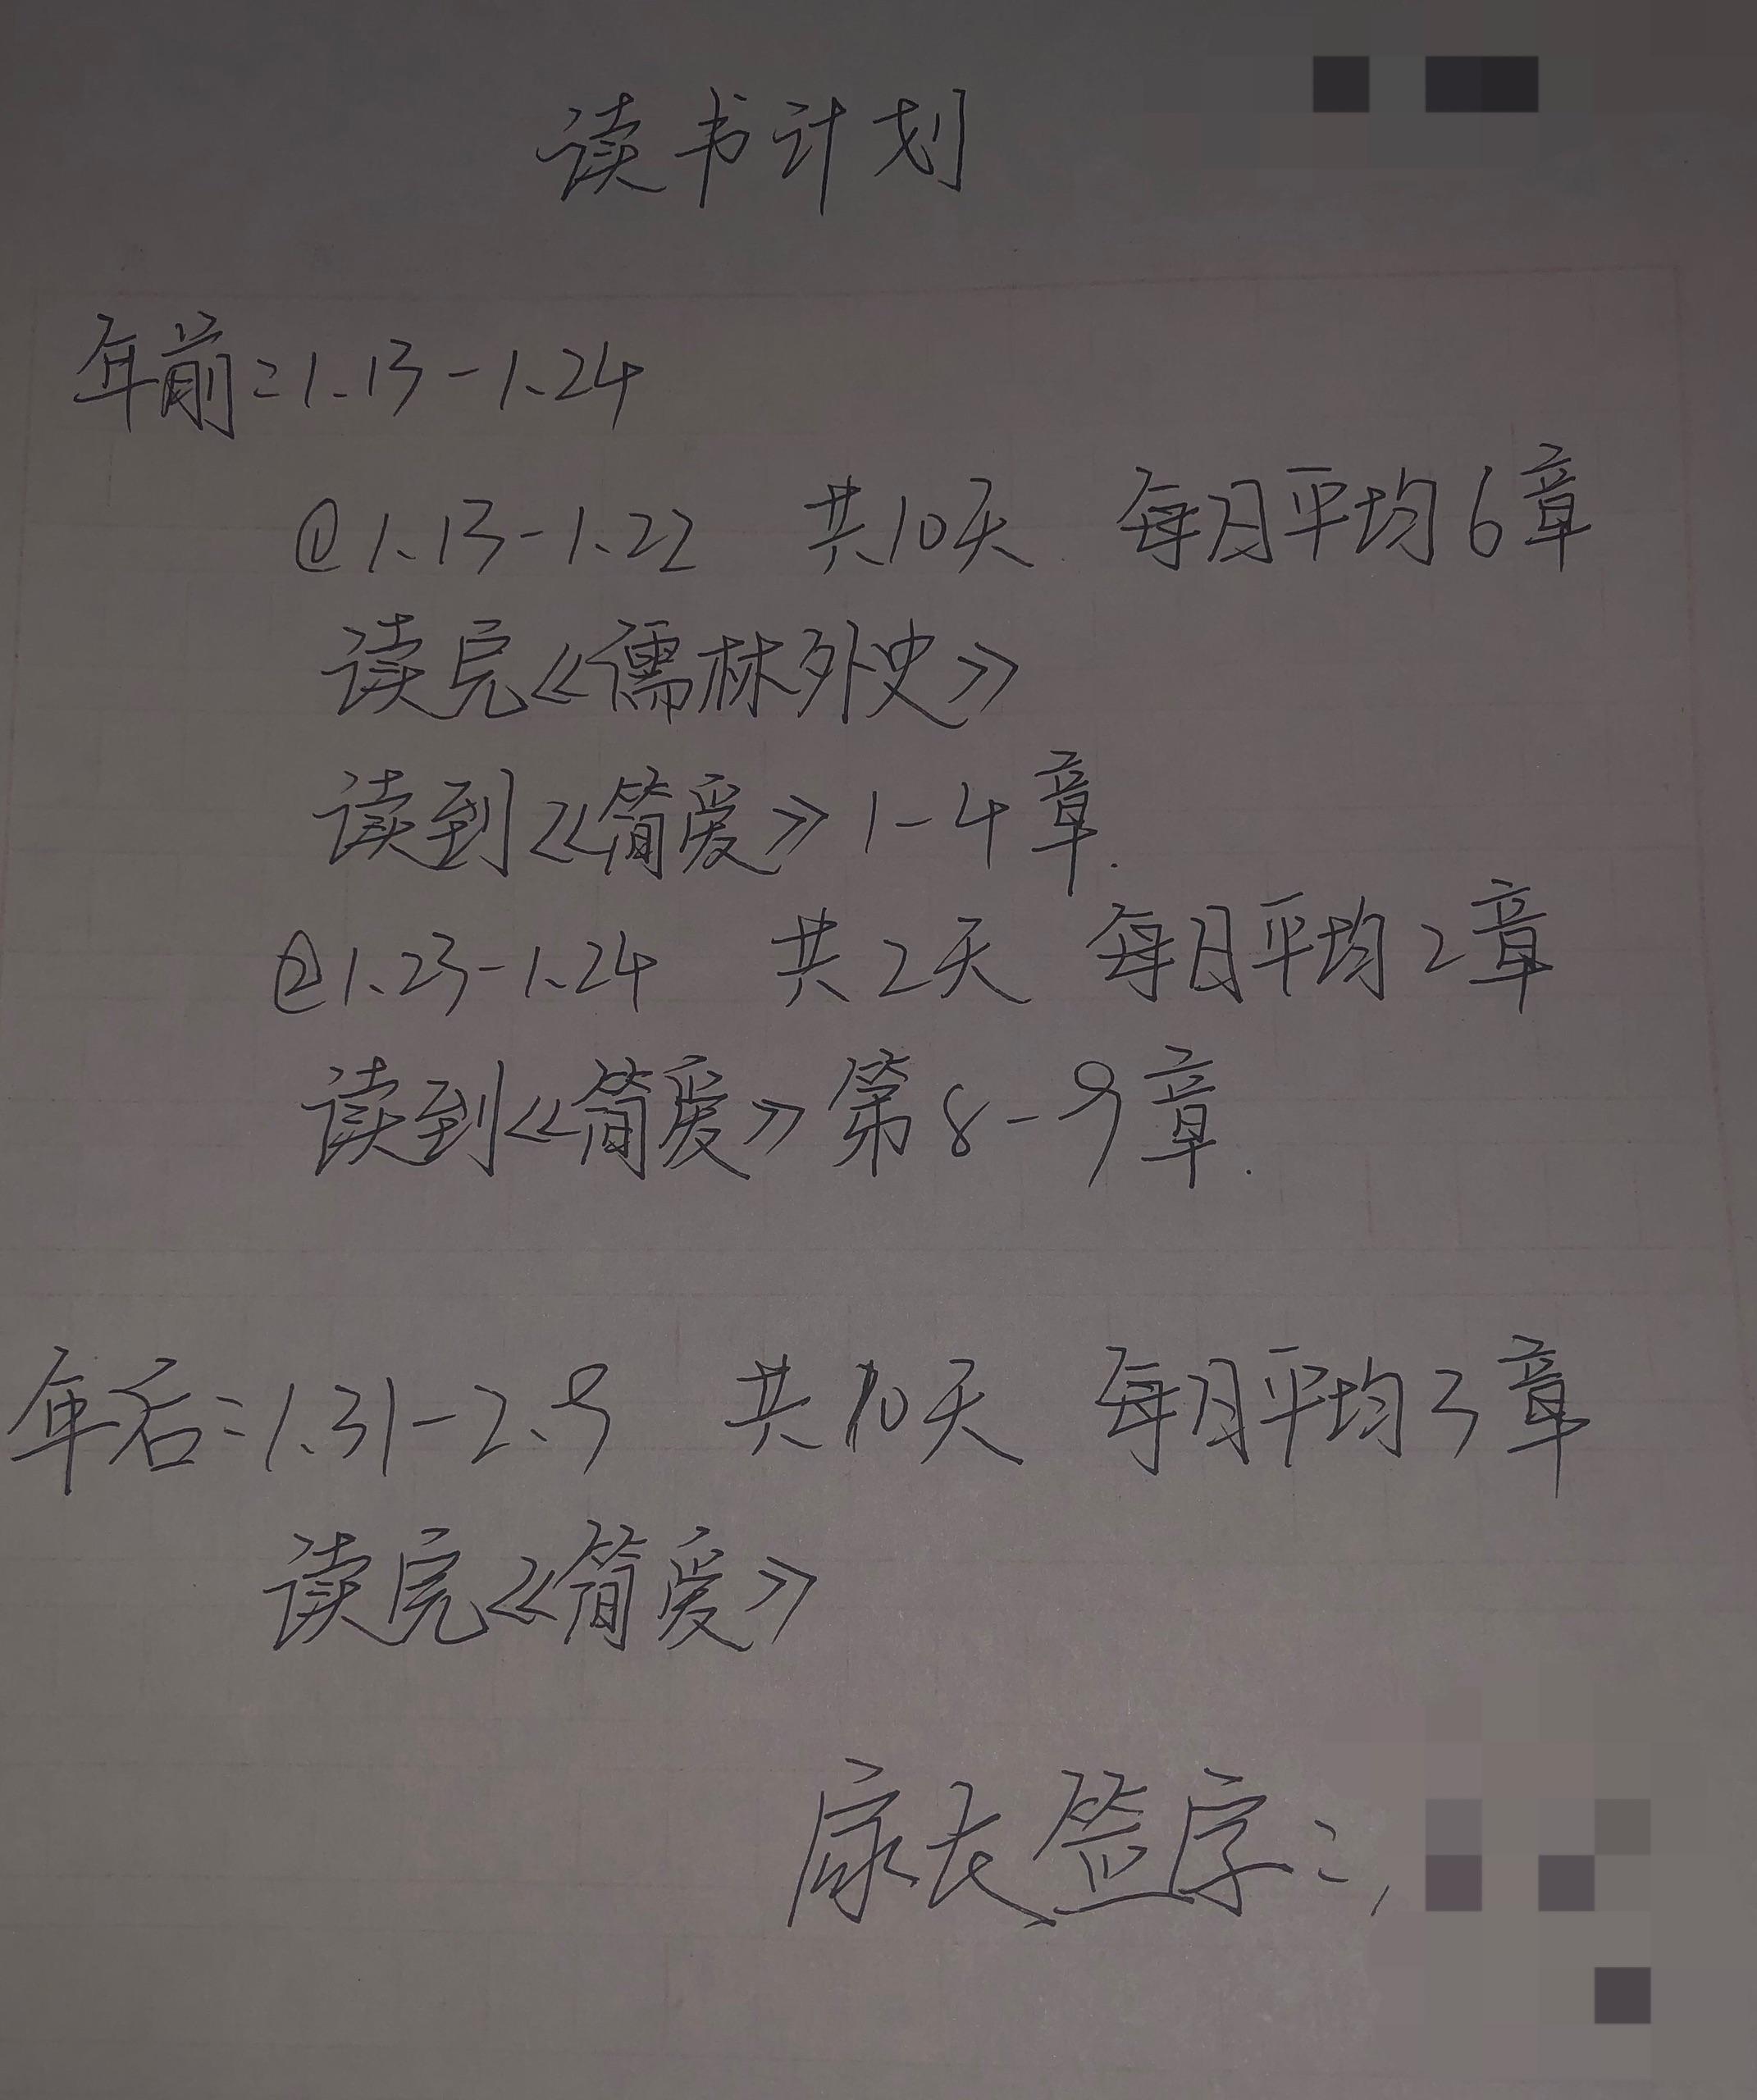 读书计划
年前:1.13-1.24
①1.13-1.22 共10天 每日平均6章
读完《儒林外史》
读到《简爱》1-4章.
②1.23-1.24 共2天 每日平均2章
读到《简爱》第8-9章.
年后:1.31-2.9 共10天 每日平均3章
读完《简爱》
家长签字: